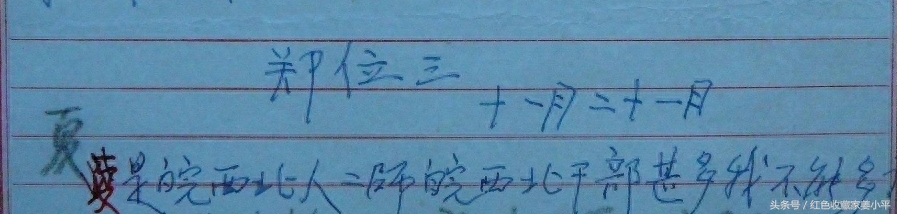 郑位三
十一月二十一月
夏是皖西北人二师皖西北干部甚多我不能多
头条号 / 红色收藏家姜小平